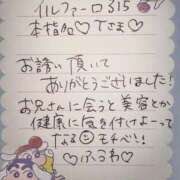 イルファーロ315
本指名♡Tさま♡
お誘い頂いて
ありがとうございました!
お兄さんに会うと美容とか
健康に気を付けよーって
なるモチベ!!
♡ふるわ♡